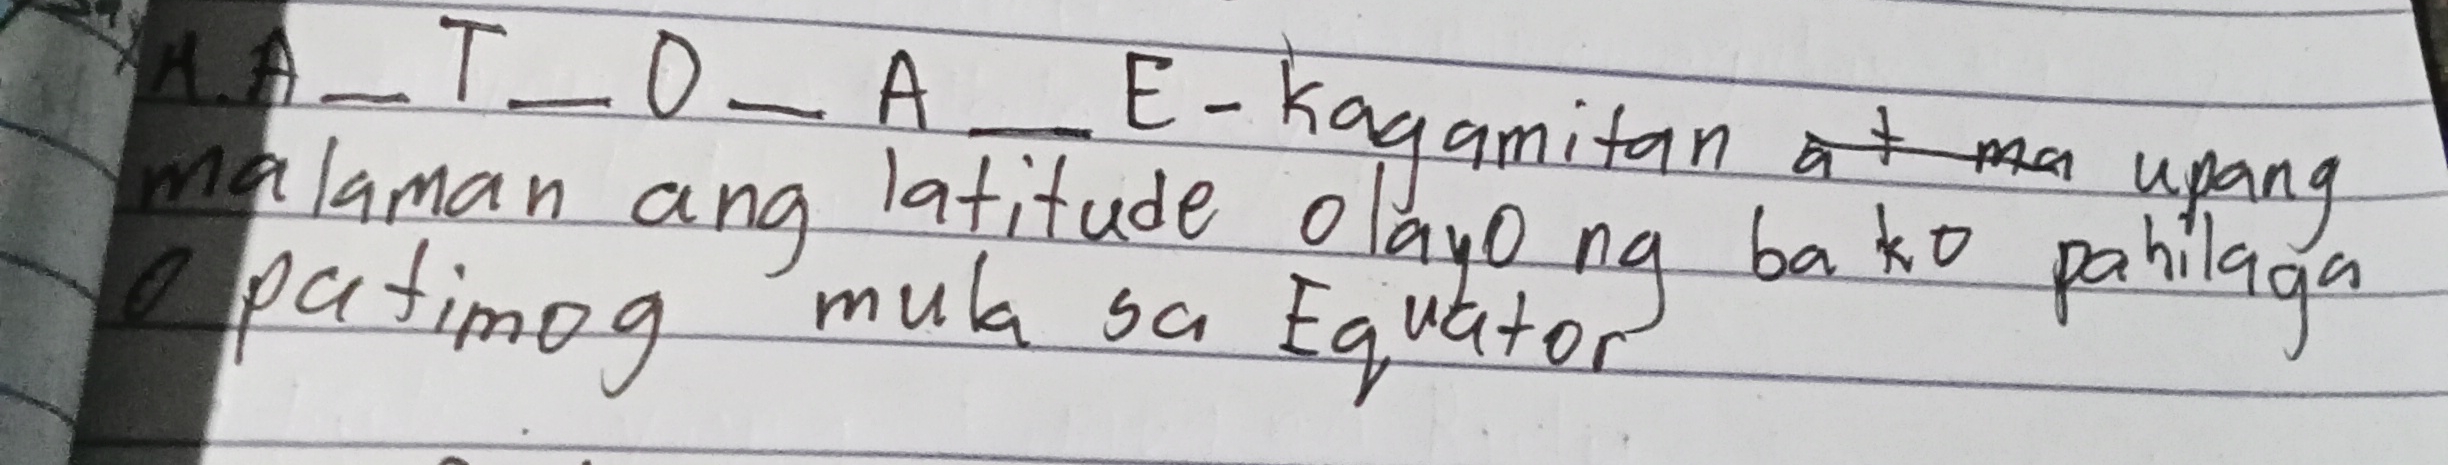 4. A _ T _ O _ A _ E - kagamitan at ma upang
malaman ang latitude o layo ng ba ko pahilaga
o patimog mula sa Equator